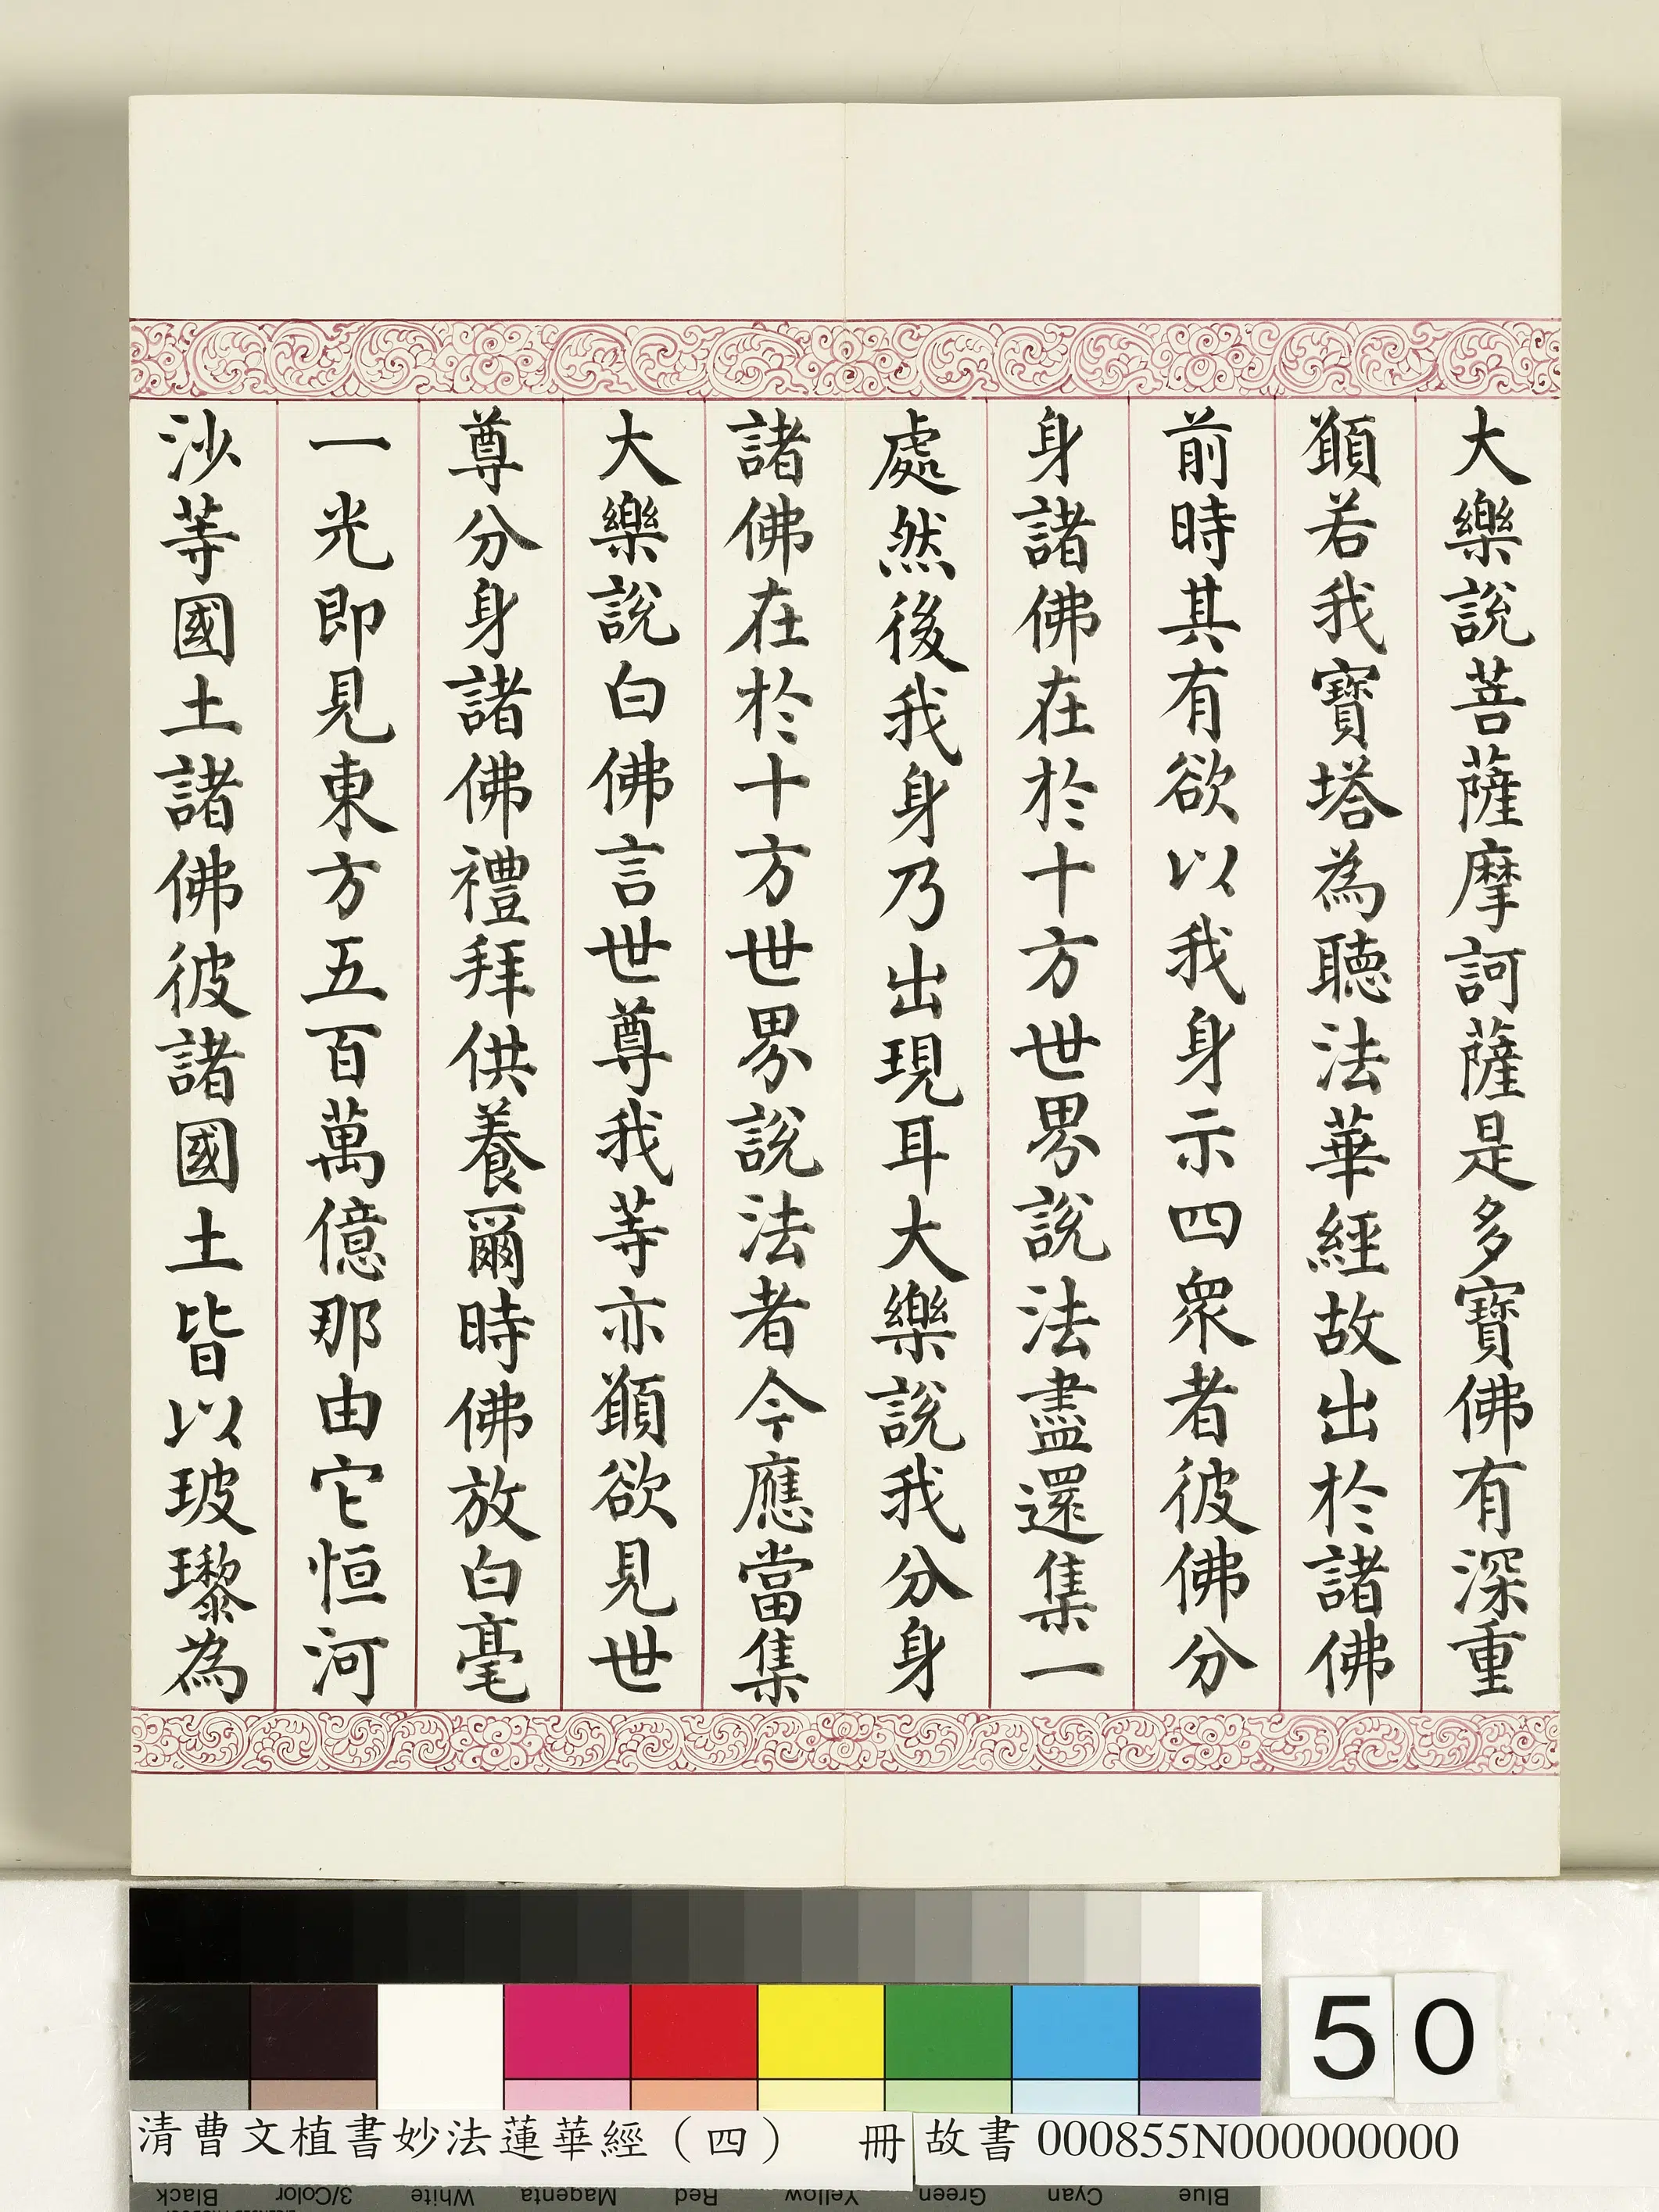 大樂說菩薩摩訶薩是多寶佛有深重
願若我寶塔為聽法華經故出於諸佛
前時其有欲以我身示四衆者彼佛分
身諸佛在於十方世界說法盡還集一
處然後我身乃出現耳大樂說我分身
諸佛在於十方世界說法者今應當集
大樂說白佛言世尊我等亦願欲見世
尊分身諸佛禮拜供養爾時佛放白毫
一光即見東方五百萬億那由它恒河
沙等國土諸佛彼諸國土皆以玻瓈為
50
清曹文植書妙法蓮華經（四） 冊
故書 000855N000000000
Black
3/Color
White
Magenta
Red
Yellow
Green
Cyan
Blue